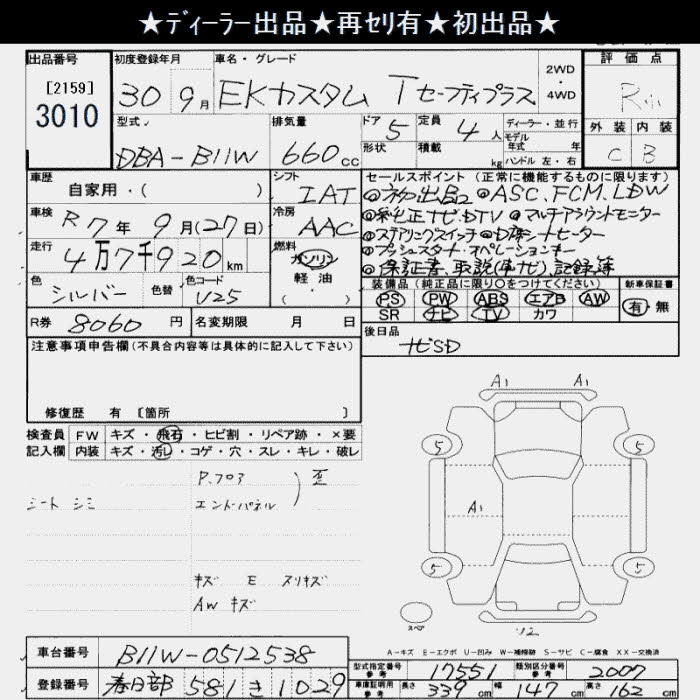 ★ディーラー出品★再セリ有★初出品★
出品番号
[2159]
3010
初度登録年月
30 9月
車名・グレード
EKカスタム Tセーフティプラス
2WD
・
4WD
評価点
外装 内装
C B
型式
DBA-B11W
排気量
660cc
ドア 5
定員 4人
ディーラー・並行
モデル
年式 年
形状
積載 kg
ハンドル 左・右
車歴
自家用・( )
シフト
IAT
車検
R7年9月(27日)
冷房
AAC
走行
4万7千920km
燃料
ガソリン
軽油
( )
色
シルバー
色替
色コード
U25
R券 8060円
名変期限 月 日
セールスポイント(正常に機能するものに限ります)
◎初出品 ◎ASC.FCM.LDW
◎純正ナビ.DTV ◎マルチアラウンドモニター
◎ステアリングスイッチ ◎D席シートヒーター
◎プッシュスタート・オペレーションキー
◎保証書、取説(車ナビ)、記録簿
装備品(純正品に限り○をつけてください)
PS PW ABS エアB AW
SR ナビ TV カワ
新車保証書
有・無
後日品
ナビSD
注意事項申告欄(不具合内容等は具体的に記入して下さい)
修復歴 有 [箇所 ]
検査員
記入欄
FW キズ・飛石・ヒビ割・リペア跡・×要
内装 キズ・汚レ・コゲ・穴・スレ・キレ・破レ
シート シミ
P.フロア
エンドパネル
) 歪
キズ E スリキズ
AW キズ
A1 A1
5 5
A1
5 5
スペア
U2
A-キズ E-エクボ U-凹み W-補修跡 S-サビ C-腐食 XX-交換済
車台番号 B11W-0512538
登録番号 春日部 581 き 1029
型式指定番号
参考
17551
類別区分番号
参考
2007
車庫証明用
参考
長さ 339cm 幅 147cm 高さ 162cm